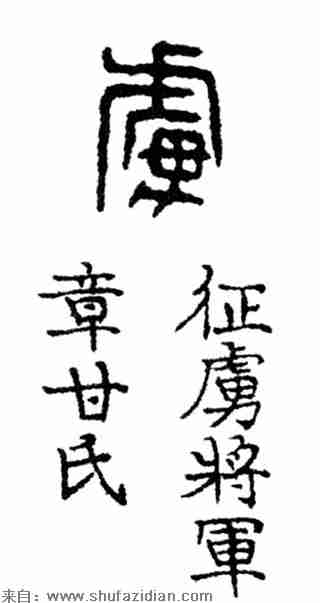 虜
征虜將軍
章甘氏
来自：www.shufazidian.com